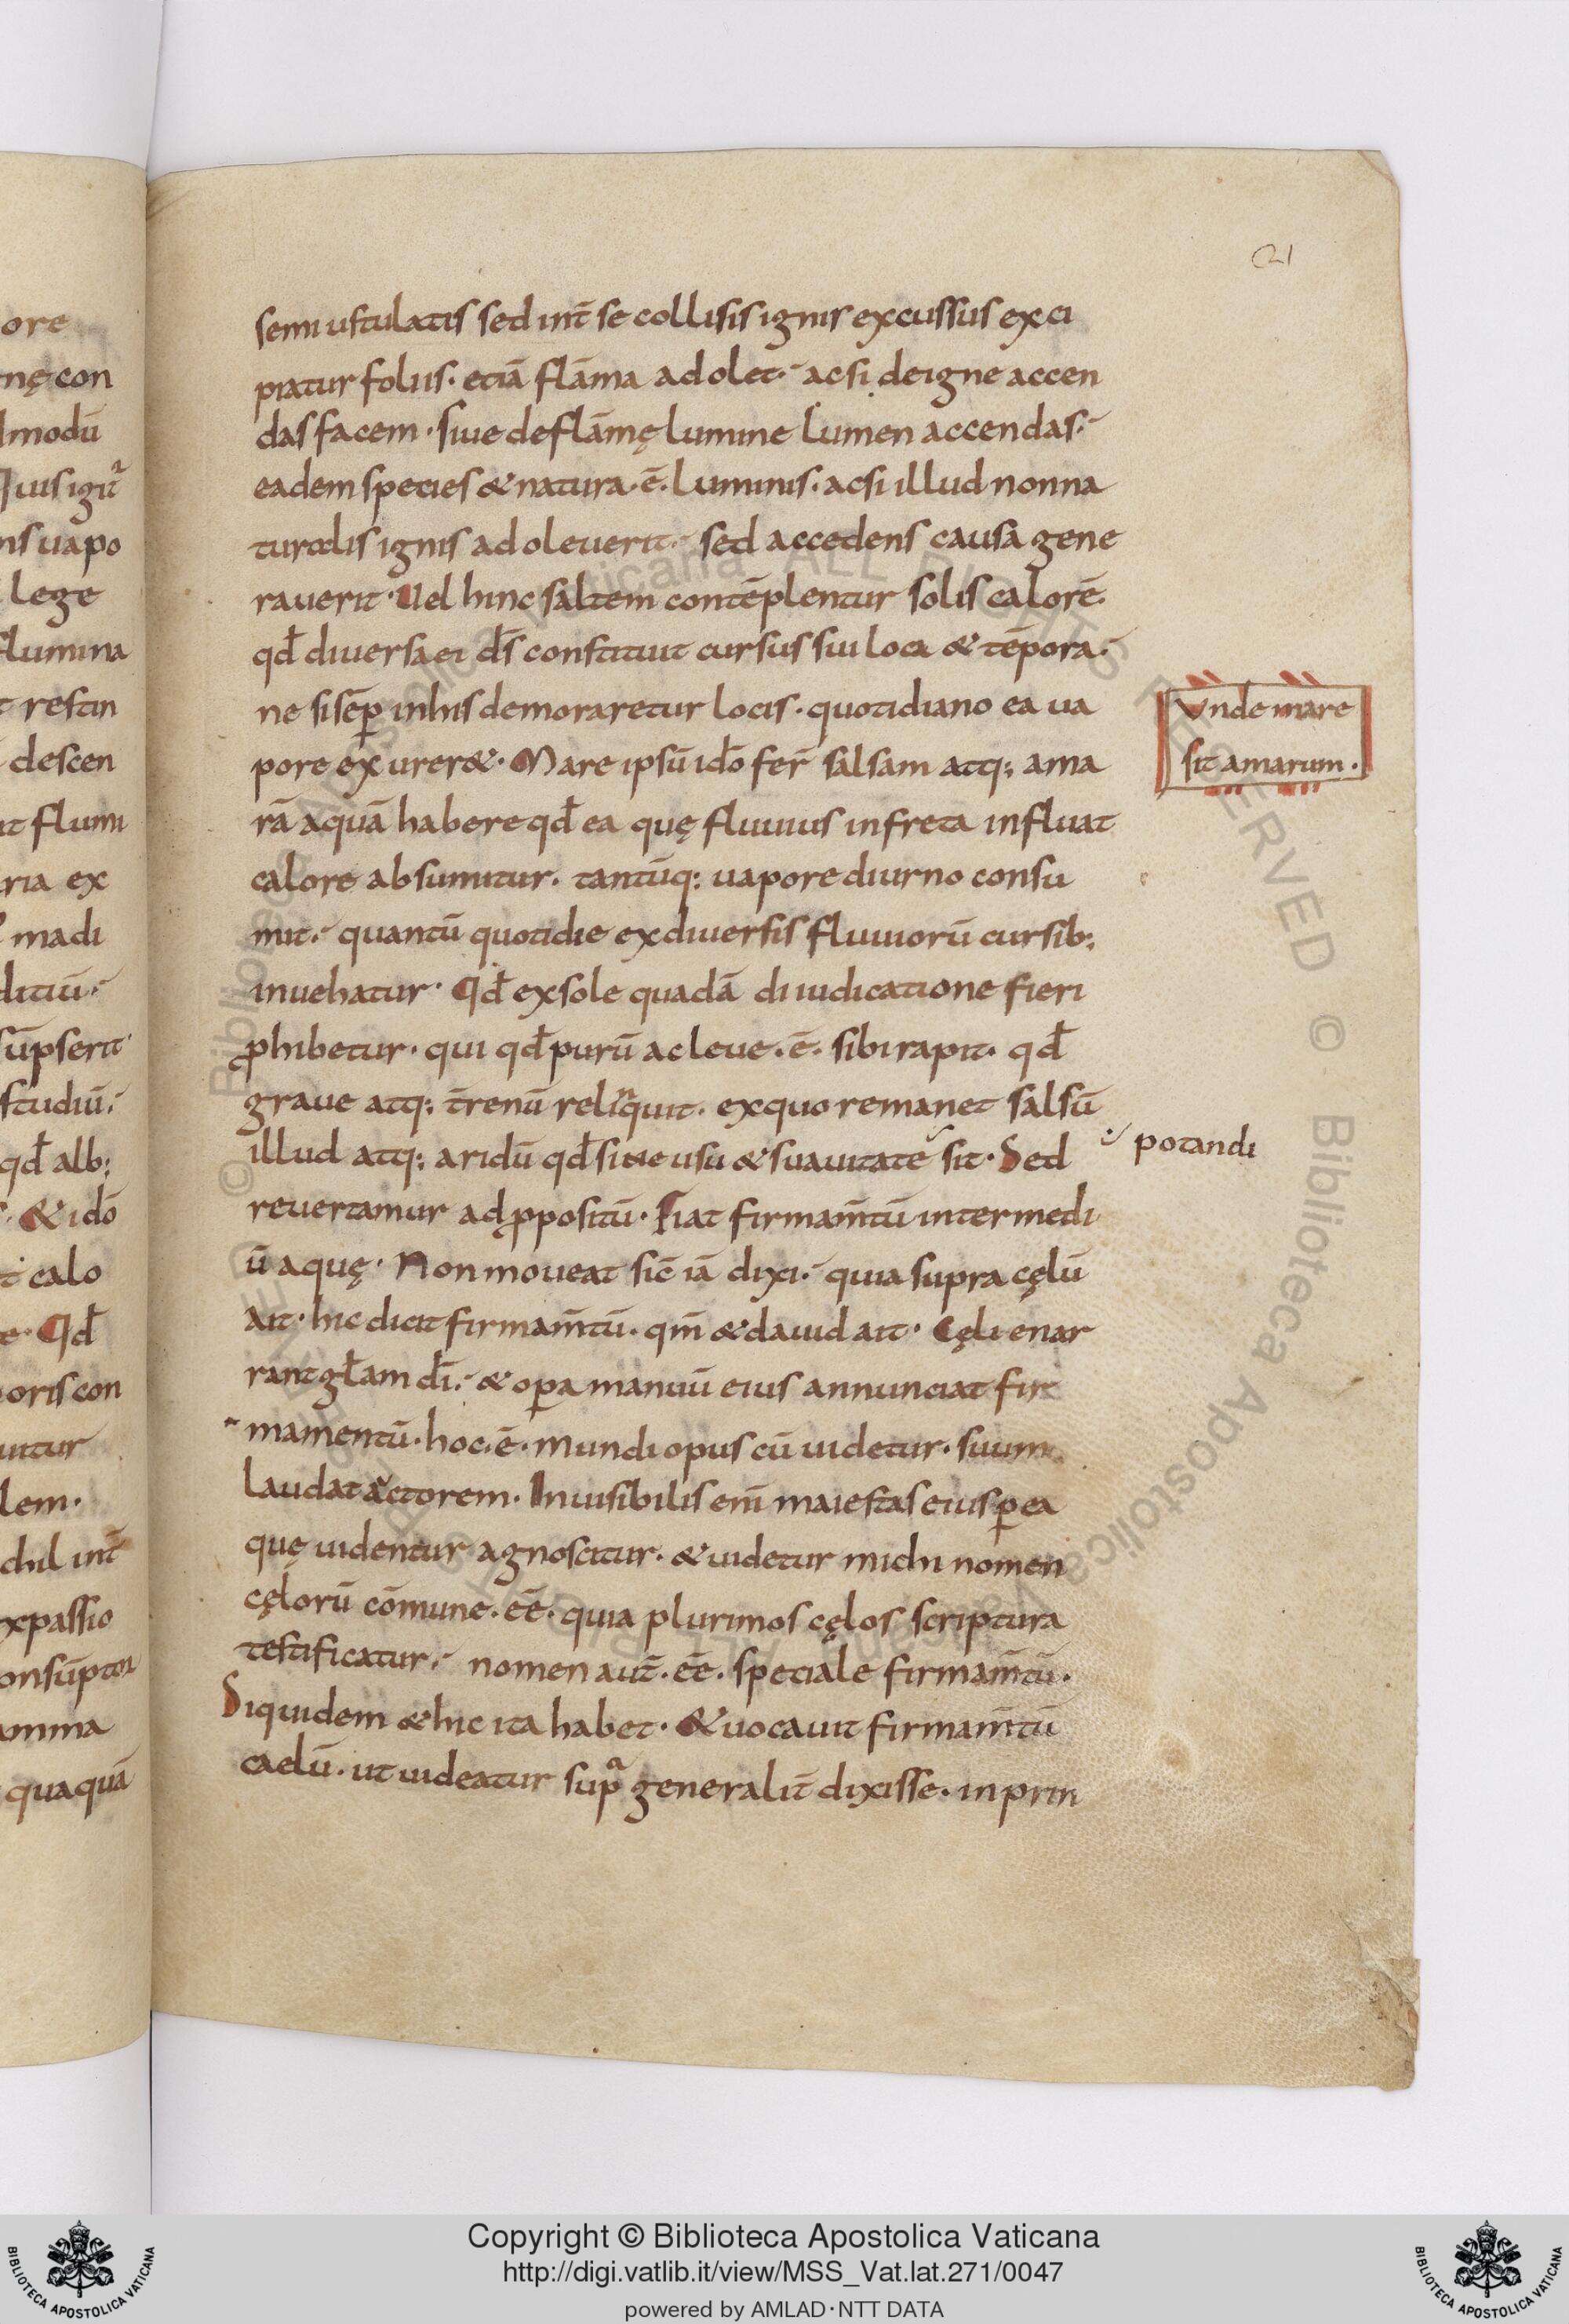 21
semi ustulatis sed int̄ se collisis ignis excussus exci
piatur foliis. etiā flāma adolet. ac si de igne accen
das facem. siue de flāmę lumine lumen accendas.
eadem species & natura. ē. luminis. ac si illud non na
turalis ignis adoleuerit. sed accedens causa gene
rauerit. Vel hinc saltem contēplentur solis calorē.
qđ diuersa ei d̄s constituit cursus sui loca & tēpora.
ne si sēꝑ in his demoraretur locis. quotidiano ea ua
pore exurer&. Mare ipsū idō fer̄ salsam atq; ama
rā aquā habere qđ ea quę fluuius in freta influat
calore absumitur. tantūq; uapore diurno consu
mit. quantū quotidie ex diuersis fluuiorū cursib;
inuehatur. Qđ ex sole quadā diiudicatione fieri
ꝓhibetur. qui qđ purū ac leue. ē. sibi rapit. qđ
graue atq; t̄renū relinquit. ex quo remanet salsū
illud atq; aridū qđ sine usu & suauitate sit. Sed
reuertamur ad ꝓpositū. Fiat firmam̄tū in medi
ū aquę. Non moueat sic̄ iā dixi. quia supra cęlū
ait. hic dicit firmam̄tū. qm̄ & dauid ait. Cęli enar
rant gła̅m dī. & oꝑa manuū eius annunciat fir
mamentū. hoc. ē. mundi opus cū uidetur. suum
laudat actorem. Inuisibilis eni̅ maiestas eius ꝑ ea
quę uidentur agnoscitur. & uidetur michi nomen
cęlorū cōmune. eē. quia plurimos cęlos scriptura
testificatur. nomen aut̄. eē. speciale firmam̄tū.
Siquidem & hic ita habet. & uocauit firmam̄tū
caelū. ut uideatur supͣ generalit̄ dixisse. in prin
Vnde mare
sit amarum.
potandi
ore
nę con
modū
ns uapo
lege
flumina
restin
descen
flumi
ria ex
madi
ditiū.
sūpserit
studiū.
qđ alb;
& idō
calo
Qđ
oris con
uitur
lem.
chil int̄
xpassio
onsūptor
amma
quaquā
© Biblioteca Apostolica Vaticana ALL RIGHTS RESERVED © Biblioteca Apostolica Vaticana ALL RIGHTS RESERVED
BIBLIOTECA APOSTOLICA VATICANA
Copyright © Biblioteca Apostolica Vaticana
http://digi.vatlib.it/view/MSS_Vat.lat.271/0047
powered by AMLAD·NTT DATA
BIBLIOTECA APOSTOLICA VATICANA